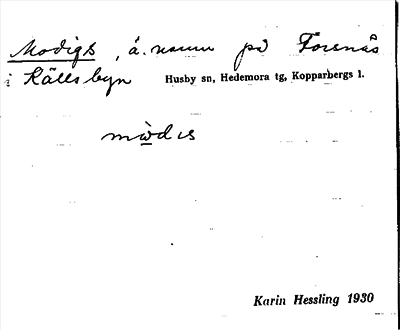 Modigs, å. namn på Forenäs
i Källsbyn Husby sn, Hedemora tg, Kopparbergs l.
mò̱dıs
Karin Hessling 1930